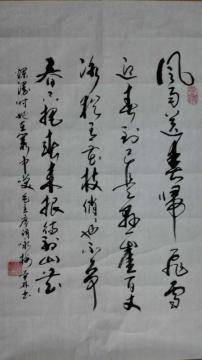 風雨送春歸飛雪
迎春到已是懸崖百丈
冰猶有花枝俏也不争
春只把春来报待到山花
爛漫時她在叢中笑 毛主席词咏梅